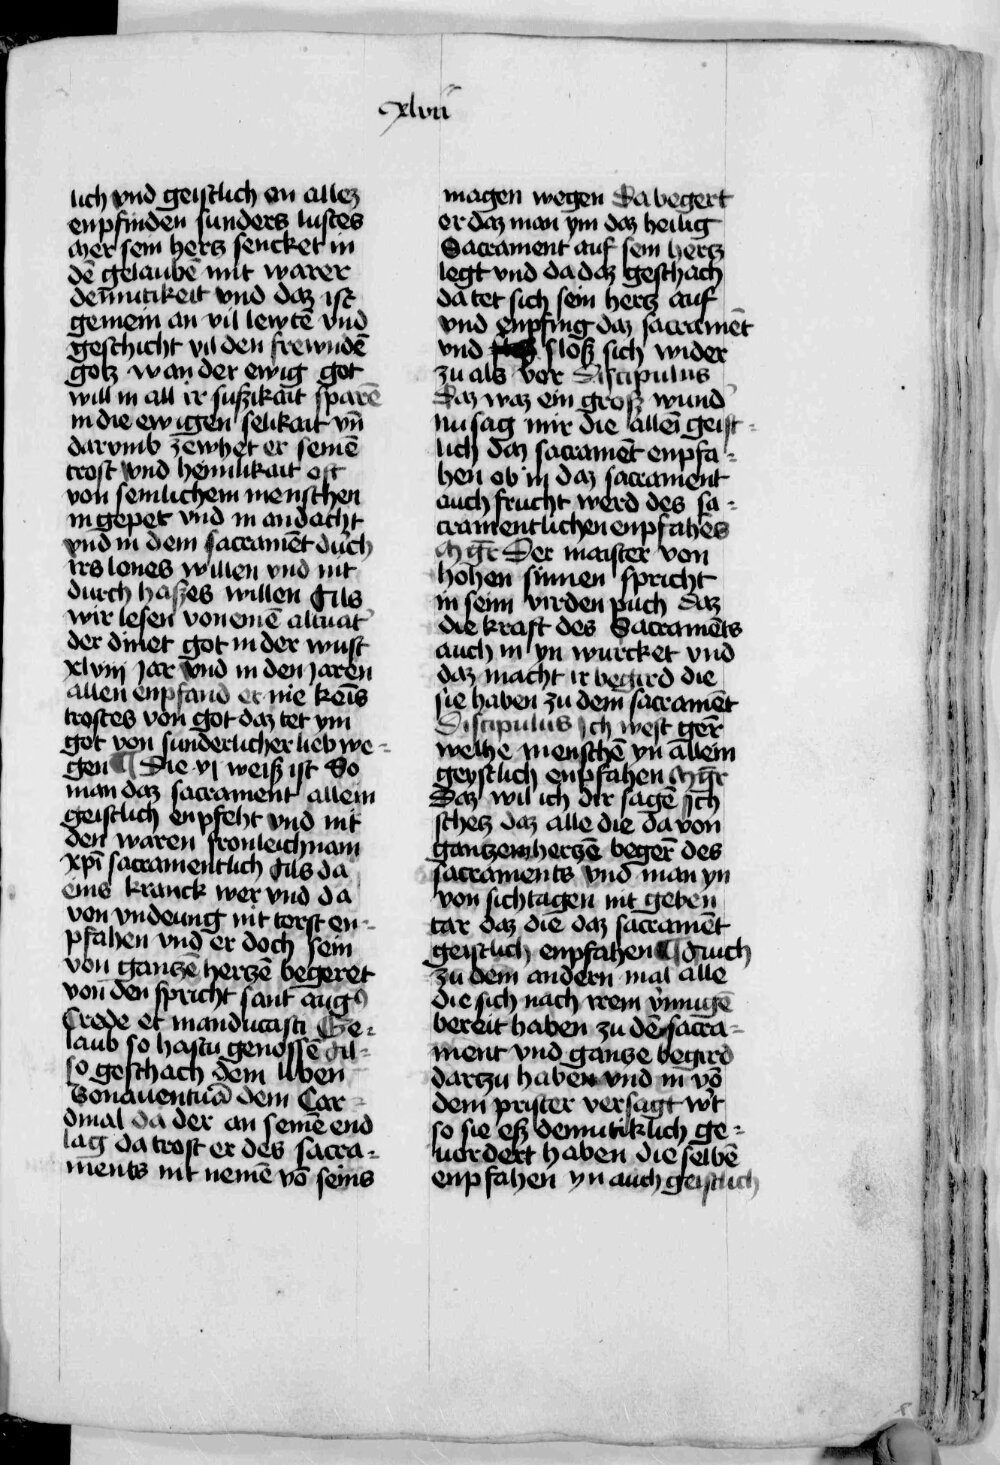 xlvii
lich vnd geistlich an allez
enpfinden sunders lustes
Mer sein hertz sencket in
dē gelaubē mit warer
demutikeit vnd daz ist
gemein an vil lewtē vnd
geschicht vil den frewndē
gotz wan der ewig got
will in all ir suszikait sparē
in die ewigen selikait vn̄
darvmb zewhet er seinē
trost vnd heimlikait oft
von semlichem menschen
in gepet vnd in andacht
vnd in dem sacramēt durch
irs lones willen vnd nit
durch hasses willen Als
wir lesen von einē altuat'
der dinet got in der wust
xlviij jar vnd in den jaren
allen enpfand er nie keīs
trostes von got daz tet ym
got von sunderlicher lieb we=
gen ¶ Die vj weiß ist So
man daz sacrament allein
geistlich enpfeht vnd nit
den waren fronleichnam
xp̄i sacramentlich Als da
eins kranck wer vnd da
von vndeung nit torst en=
pfahen vnd er doch sein
von gantzē hertzē begeret
von den spricht sant aug9
Crede et manducasti Ge=
laub so hastu genossē Al=
so geschach dem liben
Bonauentura dem Car=
dinal da der an seinē end
lag da trost er des sacra=
ments nit nemē vō seins
magen wegen Da begert
er daz man ym daz heilig
Sacrament auf sein hertz
legt vnd da daz geschach
da tet sich sein hertz auf
vnd enpfing daz sacramēt
vnd sloß sich wider
zu als vor Discipulus
Daz waz ein groß wund'
nu sag mir die allein geist=
lich daz sacramēt enpfa=
hen ob in daz sacrament
auch frucht werd des sa=
cramentlichen enpfahēs
Mgr̄ Der maister von
hohen sinnen spricht
in seim virden puch Daz
die kraft des Sacramēts
auch in yn wurcket vnd
daz macht ir begird die
sie haben zu dem sacramēt
Discipulus Ich west ger̄
welhe menschē yn allein
geystlich enpfahen Mgr̄
Daz wil ich dir sagē Ich
schetz daz alle die da von
gantzem hertzē beger̄ des
sacraments vnd man yn
von sichtagen nit geben
tar daz die daz sacramēt
geistlich enpfahen ¶ Auch
zu dem andern mal alle
die sich nach irem vermugē
bereit haben zu dē sacra=
ment vnd gantze begird
dartzu haben vnd in vō
dem prister versagt wt
so sie eß demutiklich ge=
vordert haben die selbē
enpfahen yn auch geistlich